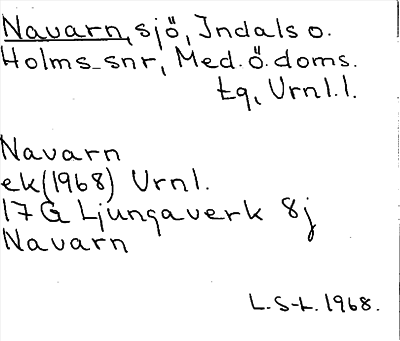 Navarn, sjö, Indals o.
Holms snr, Med. ö. doms.
tg, Urnl. l.
Navarn
ek (1968) Urnl.
17 G Ljungaverk 8j
Navarn
L. S-t. 1968.